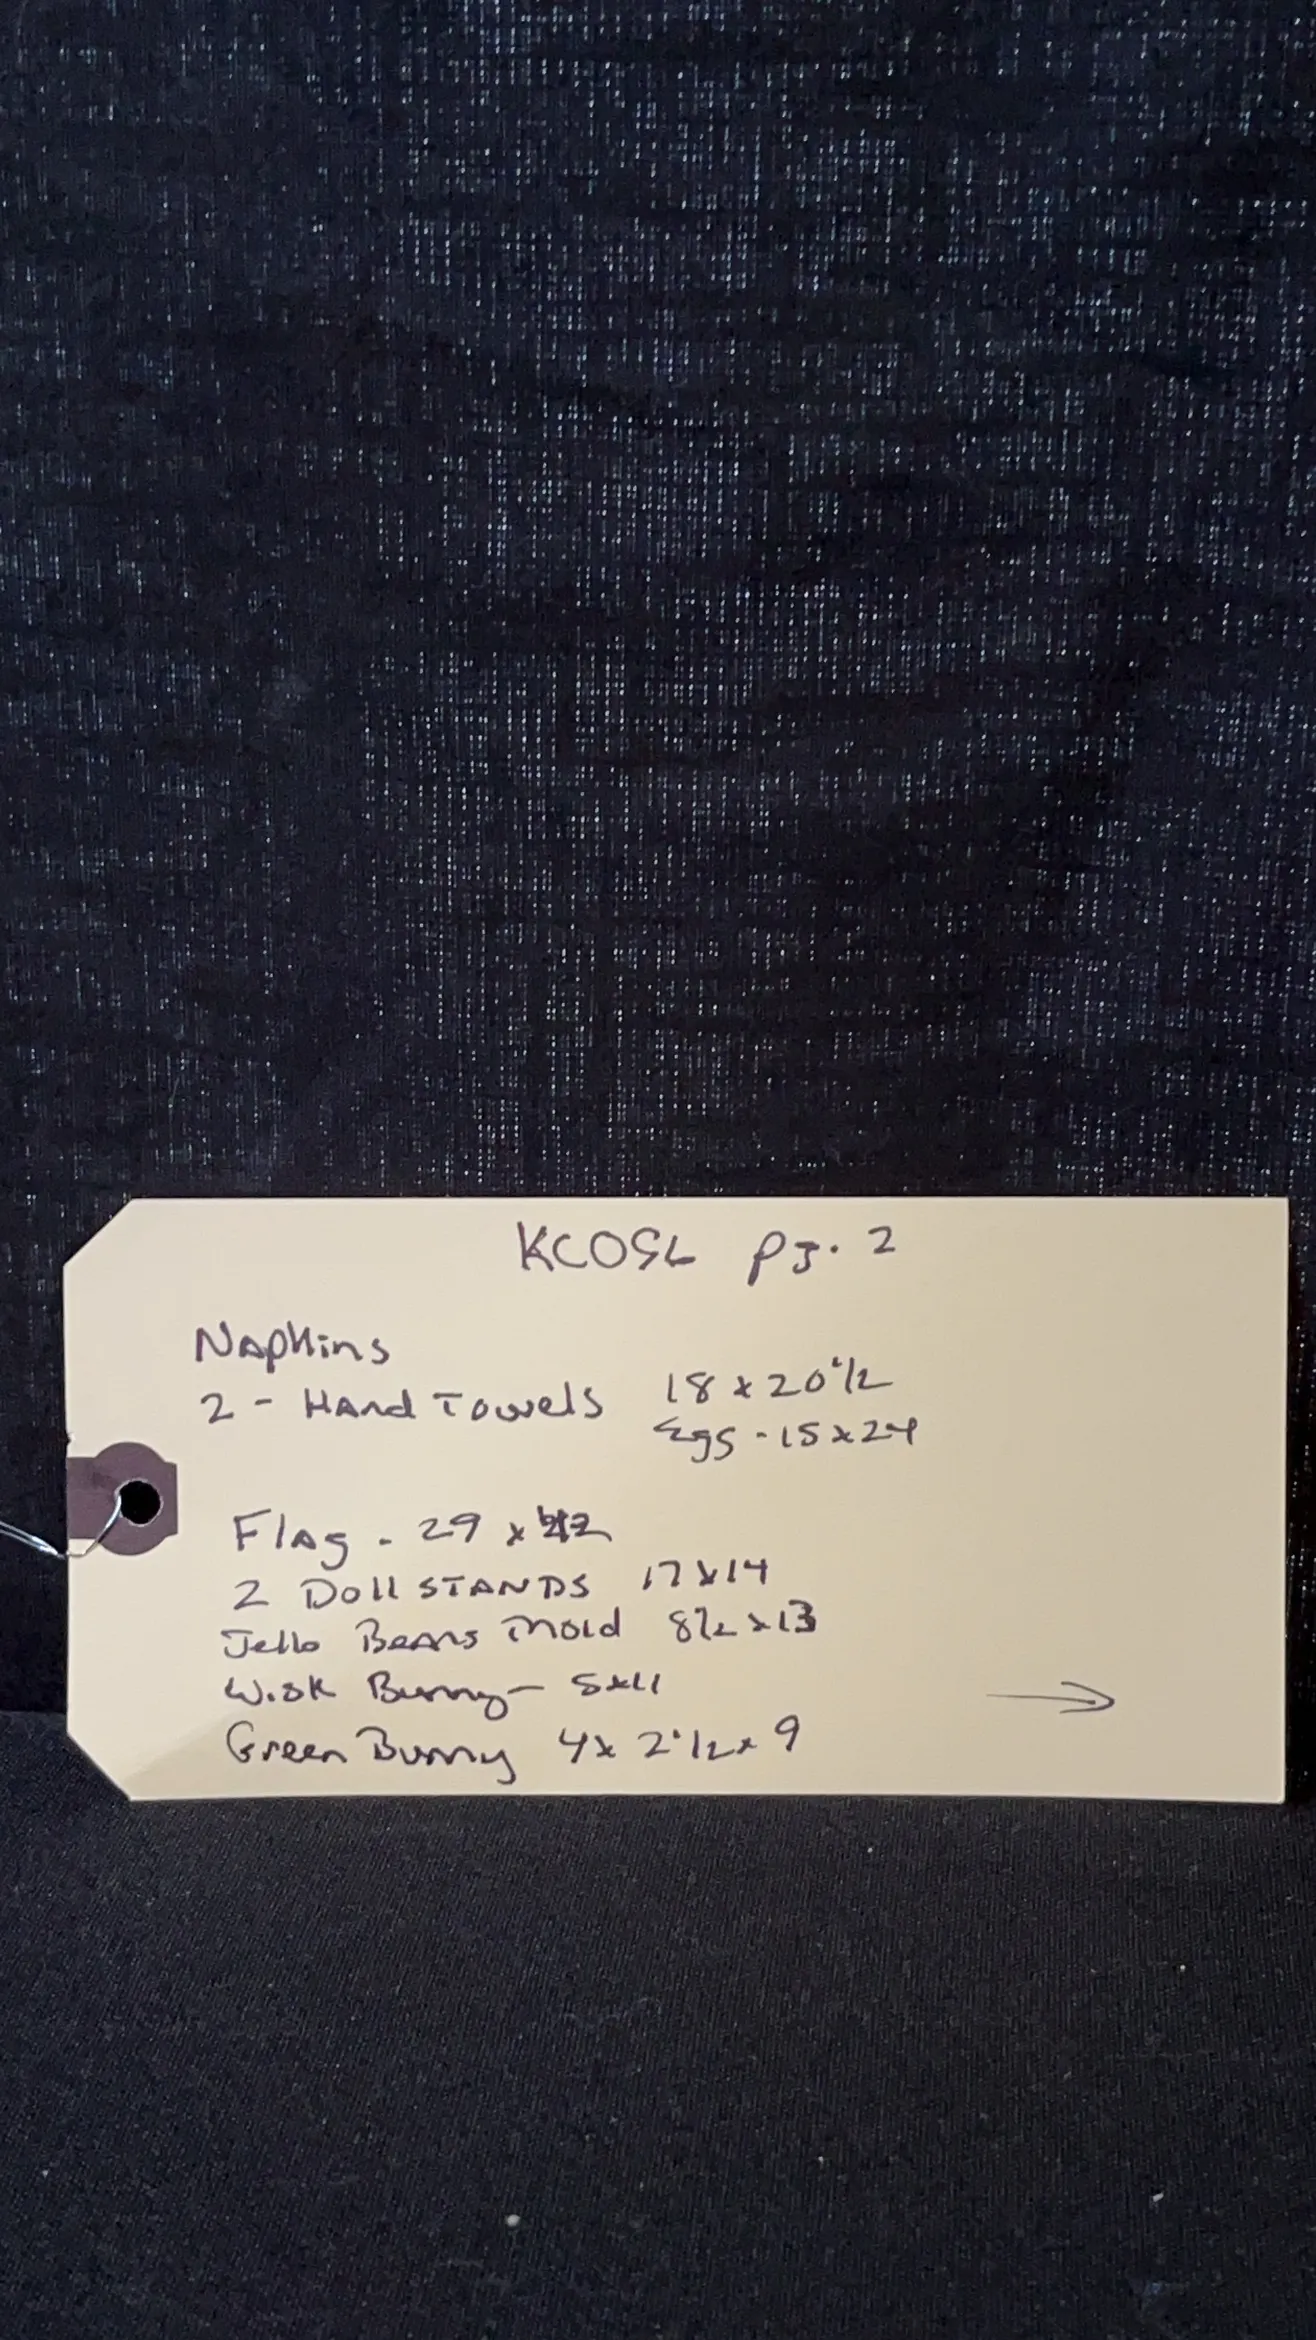 KCOSL pg. 2
Napkins
2 - Hand Towels 18 x 20 1/2
Eggs - 15 x 24
Flag - 29 x
2 Doll STANDS 17 x 14
Jello Beans Mold 8 1/2 x 13
Wisk Bunny - 5x11
Green Bunny 4 x 2 1/2 x 9
→